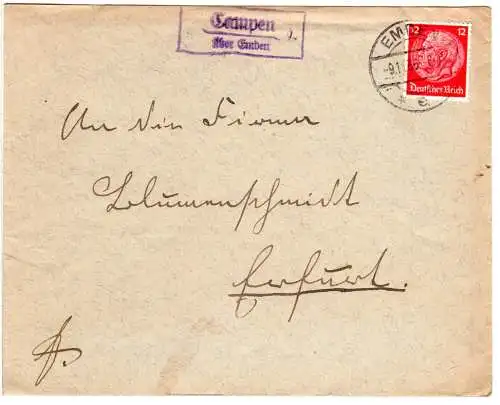 Campen
über Emden
EMDEN
12 12
Deutsches Reich
An die Firma
Blumenschmidt
Erfurt.